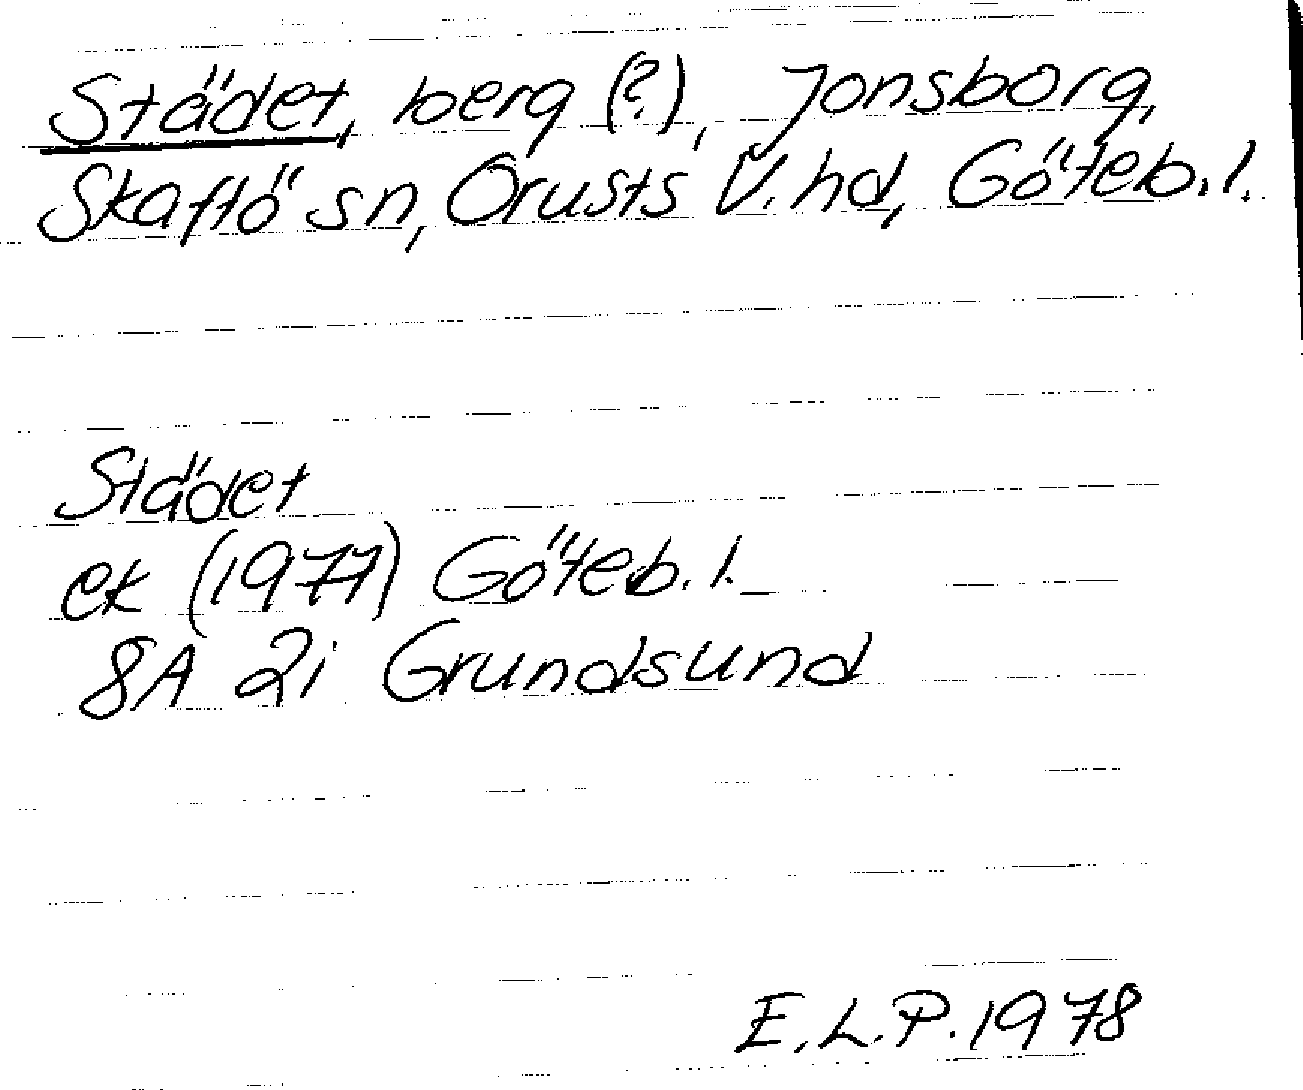 Städet, berg (?), Jonsborg,
Skaftö sn, Orusts V. hd, Göteb. l.
Städet
ek (1977) Göteb. l.
8A 2i Grundsund
E. L. P. 1978